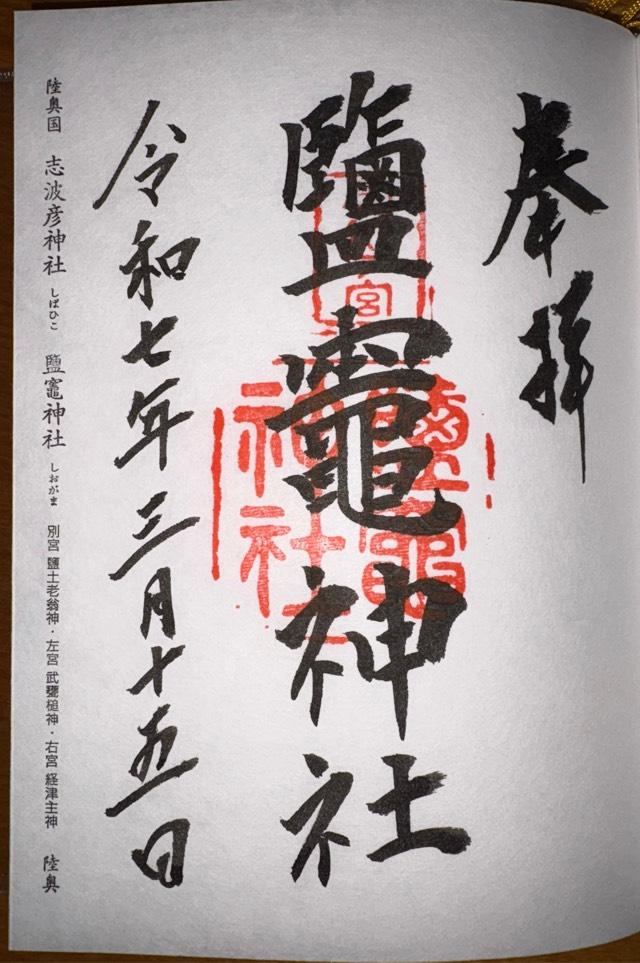 奉拝
鹽竈神社
令和七年三月十五日
陸奥国 志波彦神社 しばひこ 鹽竈神社 しおがま 別宮 鹽土老翁神・左宮 武甕槌神・右宮 経津主神 陸奥